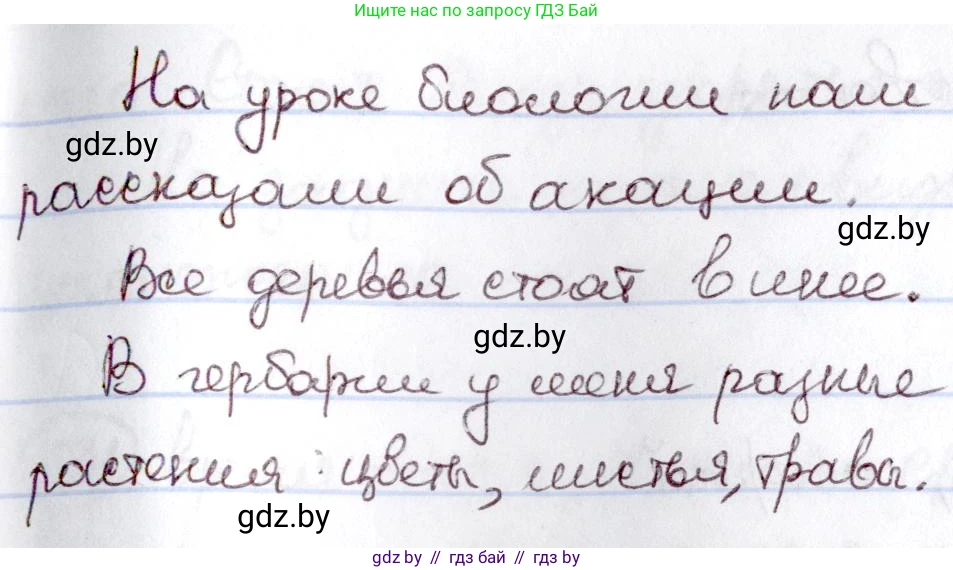 Ищите нас по запросу ГДЗ Бай
На уроке биологии нам
gdz.by
рассказали об акации.
gdz.by
Все деревья стоят в инее.
gdz.by
В гербарии у меня разные
растения: цветы, листья, травы.
gdz.by
gdz.by // гдз бай // гдз by